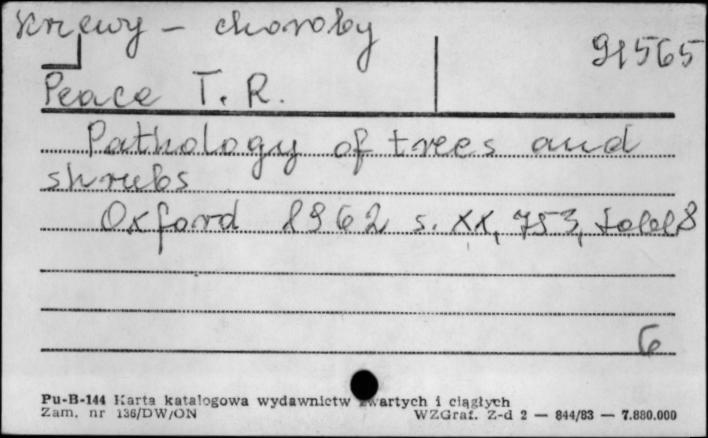 Krzewy - choroby
91565
Peace T. R.
Pathology of trees and
shrubs
Oxford 1962 s. XX, 753, tabl 8
6
Pu-B-144 Karta katalogowa wydawnictw zwartych i ciągłych
Zam. nr 136/DW/ON WZGraf. Z-d 2 — 844/83 — 7.880.000